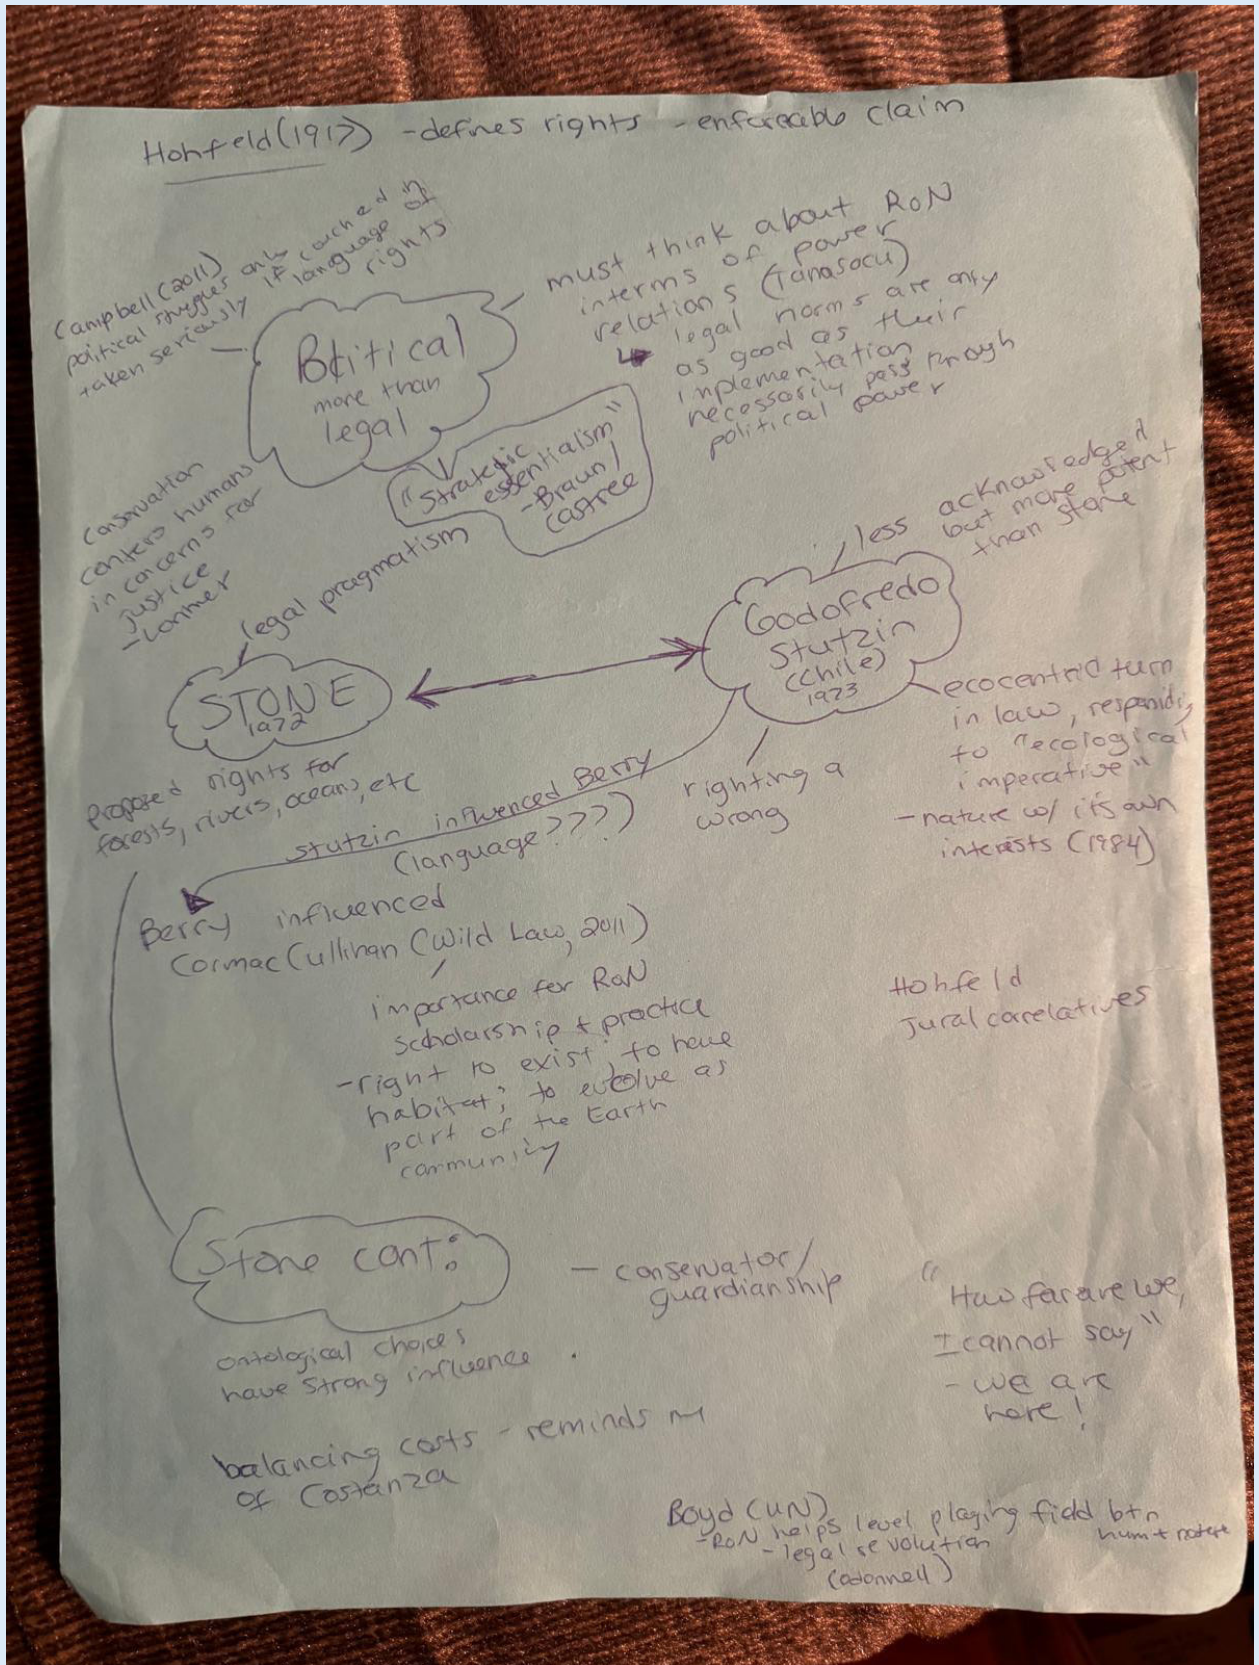 Hohfeld (1917) - defines rights - enforeable claim
Campbell (2011)
political stuggles only couched in
taken seriously if language of
rights
Political
more than
legal
must think about RoN
interms of power
relations (Tanasacu)
legal norms are only
as good as their
implementation
necessarily pass through
political power
"Strategic
essentialism"
- Braun /
Castree
Conservation
centers humans
in concerns for
justice
- Lorimer
legal pragmatism
STONE
1972
proposed rights for
forests, rivers, oceans, etc
less acknowledged
but more potent
than Stone
Godofredo
Stutzin
(Chile)
1973
ecocentric turn
in law, responding
to "ecological
imperative"
- nature w/ it's own
interests (1984)
righting a
wrong
Stutzin influenced Berry
(language????)
Berry influenced
Cormac Cullinan (Wild Law, 2011)
importance for RoN
scholarship + practice
- right to exist; to have
habitat; to evolve as
part of the Earth
community
Hohfeld
jural correlatives
Stone cont:
ontological choices
have strong influence
- conservator/
guardianship
"How far are we,
I cannot say"
- we are
here!
balancing costs - reminds
of Costanza
Boyd (UN)
- RoN helps level playing field btn
hum + nature
- legal revolution
(odonnell)